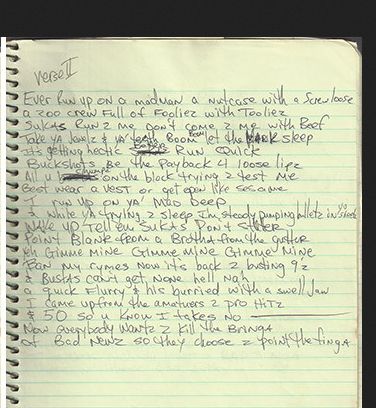 Verse II
Ever Run up on a madman a nutcase with a screwloose
a zoo crew Full of Fooliez with Tooliez
Sukas Run 2 me don't come 2 me with Beef
Take ya & ya' Boom Boom let the sleep
It's getting hectic Run Quick
Buckshots Be the Payback 4 loose lipz
All u chumps on the block trying 2 test me
Best wear a vest or get open like sesame
I run up on ya' mad Deep
& while ya trying 2 sleep I'm steady pumping in
Wake up Tell em Sukas Don't Stutter
Point Blank from a Brotha from the gutter
eh Gimme mine Gimme mine Gimme Mine
my rymes Now it's back 2 busting 9z
& Bustas can't get None hell Nah
a quick Flurry & his burried with a swell Jaw
I came up from the amatures 2 pro Hitz
& 50 so u know I takes no
Now everybody Wantz 2 kill the Bringa
of Bad Newz so they choose 2 point the finga